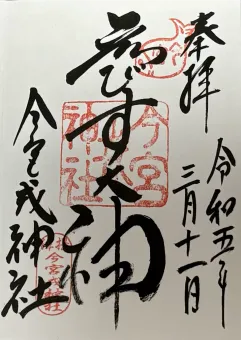 奉拝
令和五年
三月十一日
ゑびす大神
今宮
神社
今宮戎神社
今宮戎神社